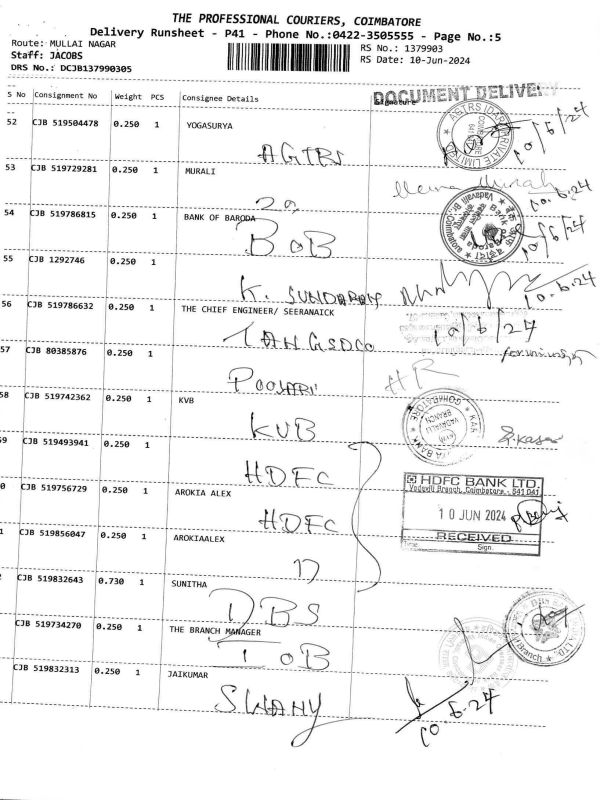 THE PROFESSIONAL COURIERS, COIMBATORE
Delivery Runsheet - P41 - Phone No.:0422-3505555 - Page No.:5
Route: MULLAI NAGAR
RS No.: 1379903
Staff: JACOBS
RS Date: 10-Jun-2024
DRS No.: DCJB137990305
S No Consignment No Weight PCS Consignee Details Signature
DOCUMENT DELIVERY
52 CJB 519504478 0.250 1 YOGASURYA
10/6/24
53 CJB 519729281 0.250 1 MURALI
10.6.24
54 CJB 519786815 0.250 1 BANK OF BARODA
BOB
10/6/24
55 CJB 1292746 0.250 1
K. SUNDARAM
10.6.24
56 CJB 519786632 0.250 1 THE CHIEF ENGINEER/ SEERANAICK
10/6/24
57 CJB 80385876 0.250 1
HR
58 CJB 519742362 0.250 1 KVB
KVB
9 CJB 519493941 0.250 1
HDFC
HDFC BANK LTD.
Vadavlli Branch, Coimbatore - 641 041
0 CJB 519756729 0.250 1 AROKIA ALEX
HDFC
10 JUN 2024
RECEIVED
Time: Sign.
1 CJB 519856047 0.250 1 AROKIAALEX
CJB 519832643 0.730 1 SUNITHA
DBS
CJB 519734270 0.250 1 THE BRANCH MANAGER
IOB
CJB 519832313 0.250 1 JAIKUMAR
SWAMY
10.6.24